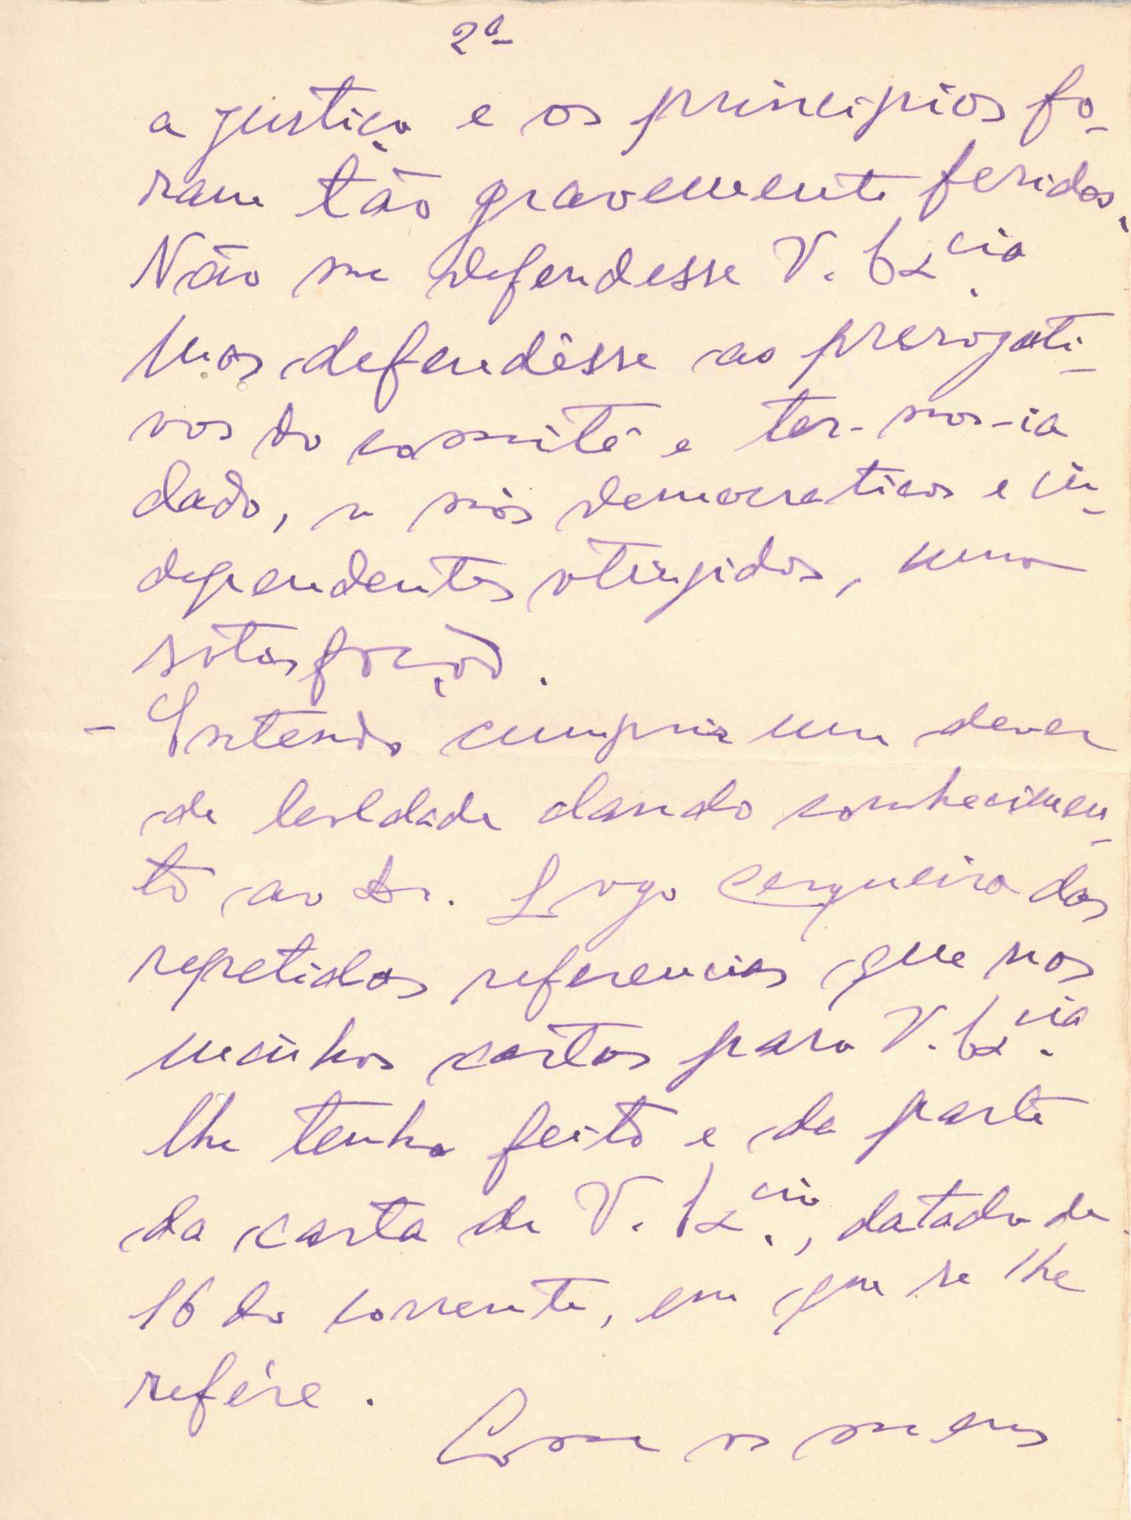 2ª
a justiça e os principios fo-
ram tão gravemente feridos.
Não me defendesse V. Excia.
Mas defendêsse as prerogati-
vas do comité e ter-nos-ia
dado, a nós democraticos e in-
dependentes atingidos, uma
satisfação.
- Entendo cumprir um dever
de lealdade dando conhecimen-
to ao Dr. Lago Cerqueira das
repetidas referencias que nas
minhas cartas para V. Excia.
lhe tenho feito e da parte
da carta de V. Excia., datada de
16 do corrente, em que se lhe
refére.
Com os meus